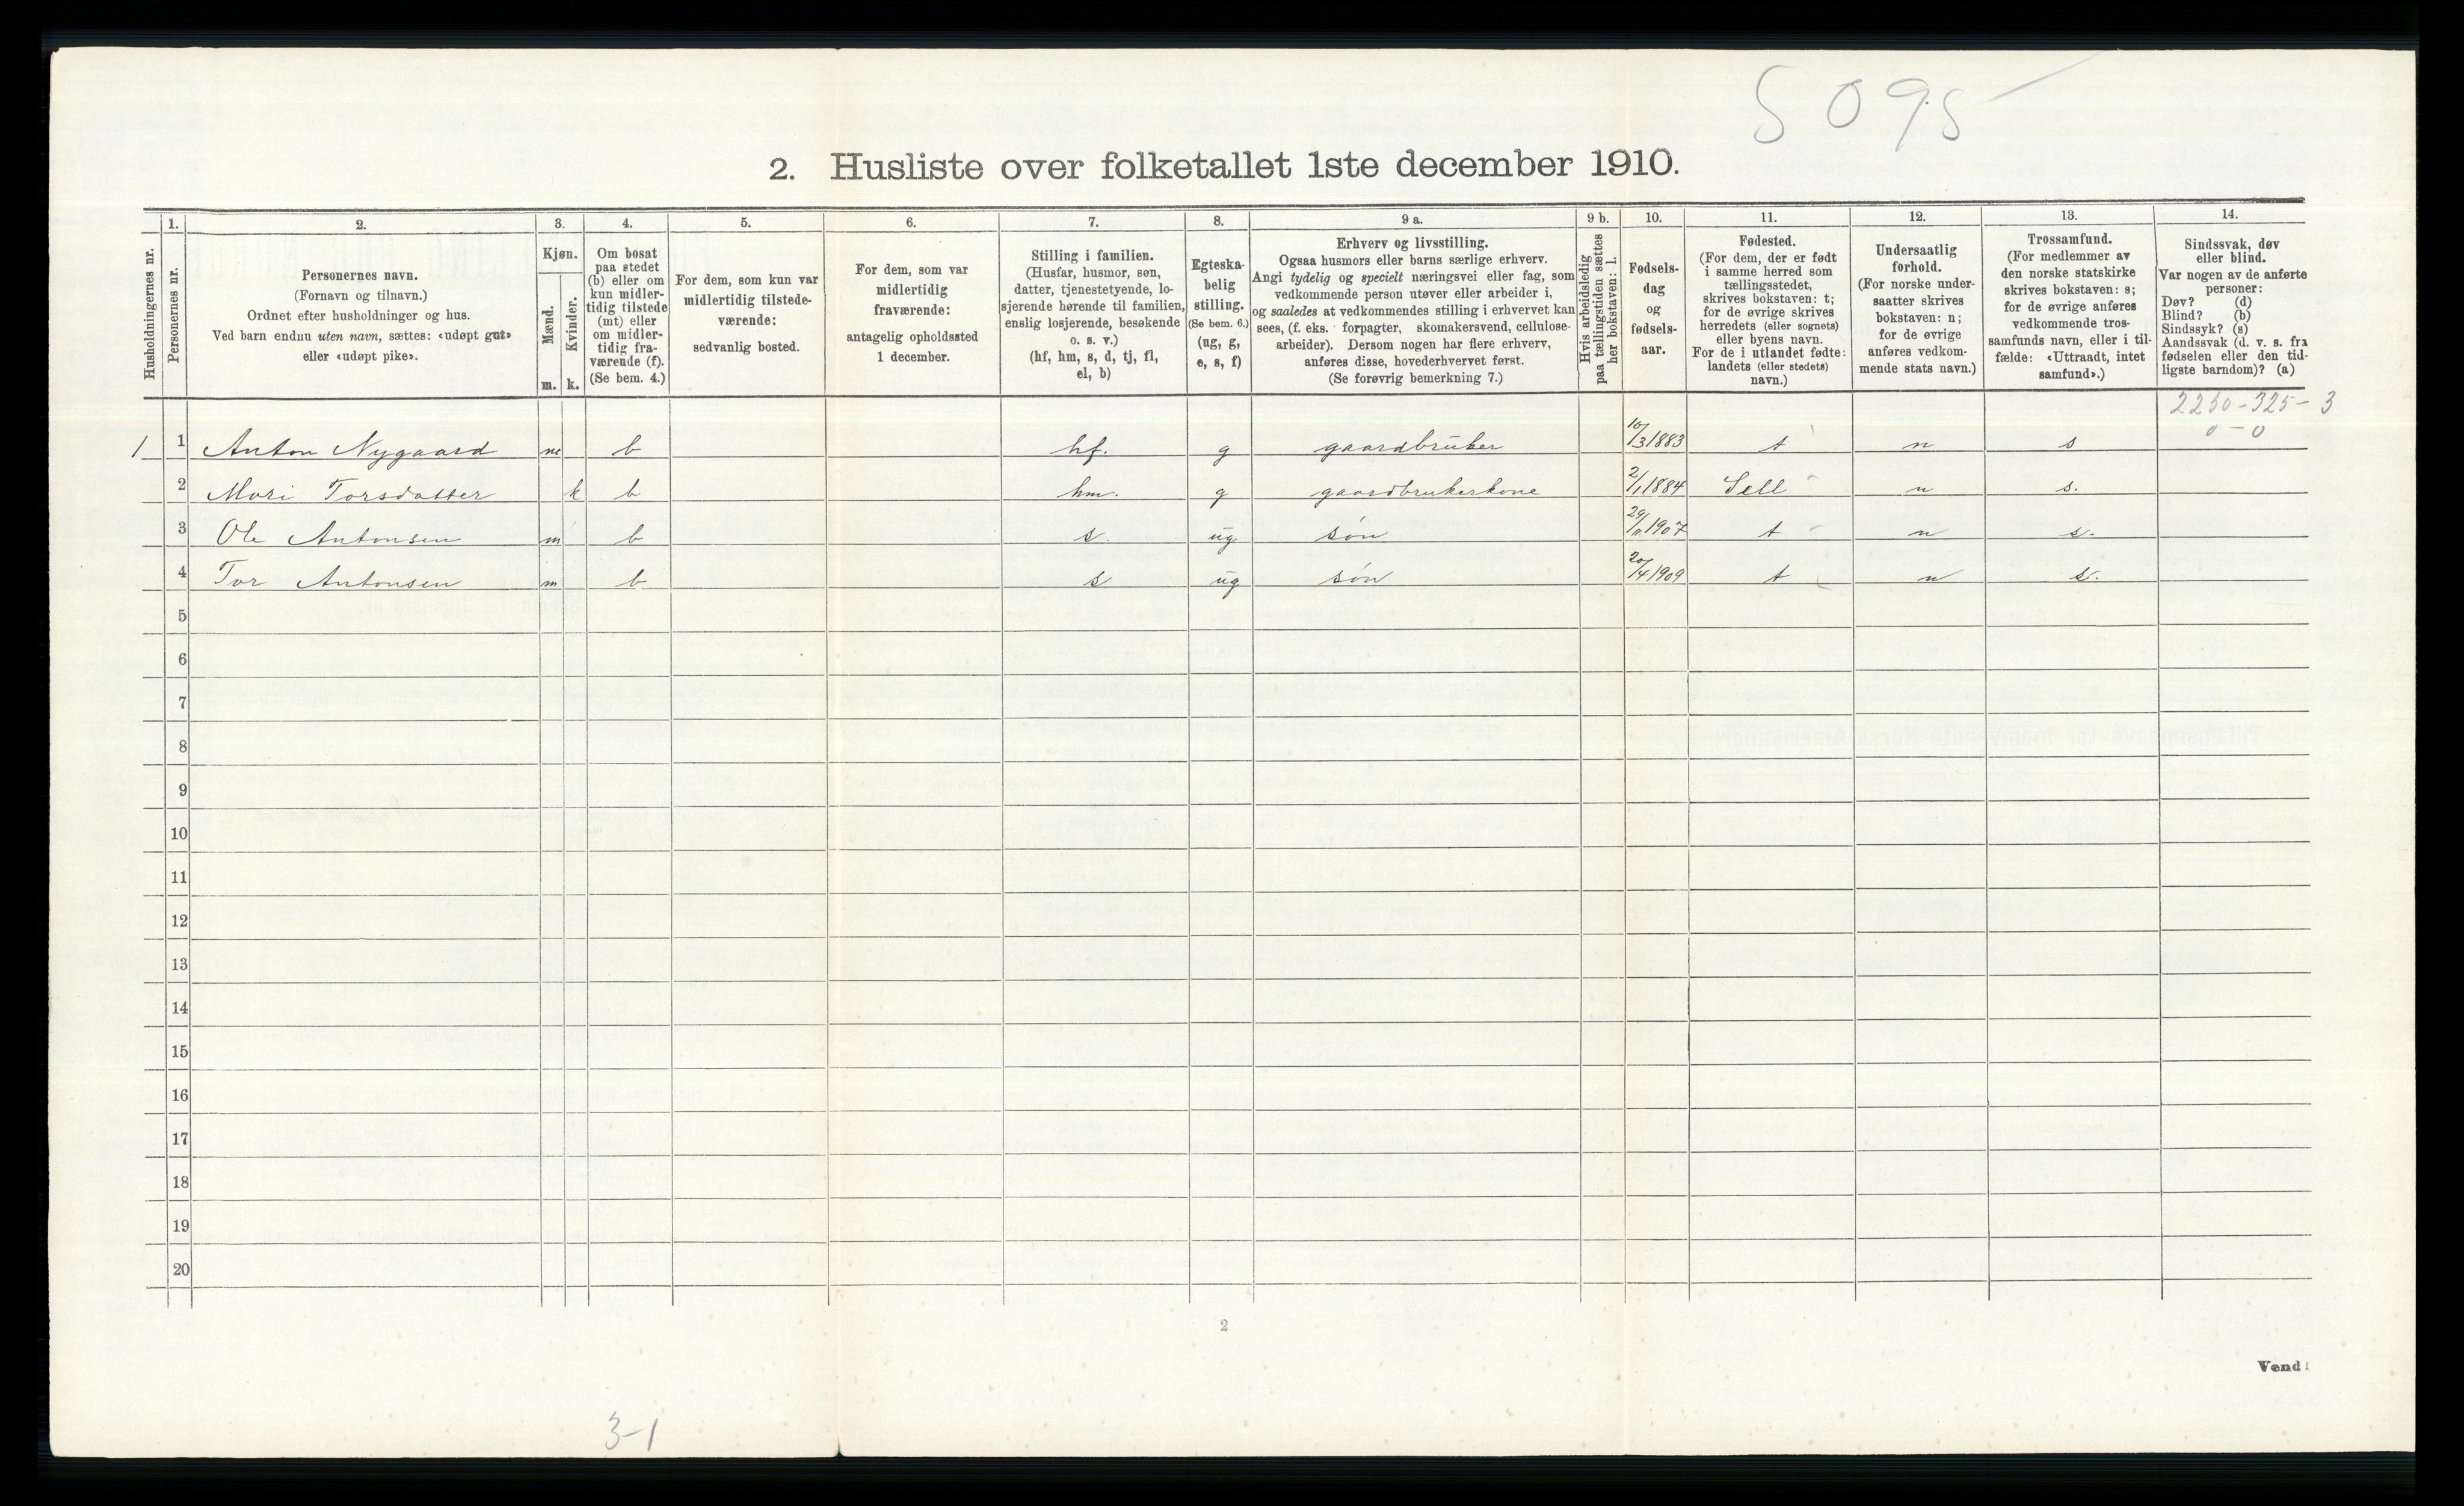 5095
2. Husliste over folketallet 1ste december 1910.
Husholdningernes nr.
1.
Personernes nr.
2.
Personernes navn.
(Fornavn og tilnavn.)
Ordnet efter husholdninger og hus.
Ved barn endnu uten navn, sættes: «udøpt gut»
eller «udøpt pike».
3.
Kjøn.
Mænd.
Kvinder.
m. k.
4.
Om bosat
paa stedet
(b) eller om
kun midler-
tidig tilstede
(mt) eller
om midler-
tidig fra-
værende (f).
(Se bem. 4.)
5.
For dem, som kun var
midlertidig tilstede-
værende:
sedvanlig bosted.
6.
For dem, som var
midlertidig
fraværende:
antagelig opholdssted
1 december.
7.
Stilling i familien.
(Husfar, husmor, søn,
datter, tjenestetyende, lo-
sjerende hørende til familien,
enslig losjerende, besøkende
o. s. v.)
(hf, hm, s, d, tj, fl,
el, b)
8.
Egteska-
belig
stilling.
(Se bem. 6.)
(ug, g,
e, s, f)
9 a.
Erhverv og livsstilling.
Ogsaa husmors eller barns særlige erhverv.
Angi tydelig og specielt næringsvei eller fag, som
vedkommende person utøver eller arbeider i,
og saaledes at vedkommendes stilling i erhvervet kan
sees, (f. eks. forpagter, skomakersvend, cellulose-
arbeider). Dersom nogen har flere erhverv,
anføres disse, hovederhvervet først.
(Se forøvrig bemerkning 7.)
9 b.
Hvis arbeidsledig
paa tællingstiden sættes
her bokstaven: l.
10.
Fødsels-
dag
og
fødsels-
aar.
11.
Fødested.
(For dem, der er født
i samme herred som
tællingsstedet,
skrives bokstaven: t;
for de øvrige skrives
herredets (eller sognets)
eller byens navn.
For de i utlandet fødte:
landets (eller stedets)
navn.)
12.
Undersaatlig
forhold.
(For norske under-
saatter skrives
bokstaven: n;
for de øvrige
anføres vedkom-
mende stats navn.)
13.
Trossamfund.
(For medlemmer av
den norske statskirke
skrives bokstaven: s;
for de øvrige anføres
vedkommende tros-
samfunds navn, eller i til-
fælde: «Uttraadt, intet
samfund».)
14.
Sindssvak, døv
eller blind.
Var nogen av de anførte
personer:
Døv? (d)
Blind? (b)
Sindssyk? (s)
Aandssvak (d. v. s. fra
fødselen eller den tid-
ligste barndom)? (a)
2250-325-3
0-0
1 1 Anton Nygaard m b hf. g gaardbruker 10/3 1883 t n s
2 Mari Torsdatter k b hm. g gaardbrukerkone 2/1 1884 Sell n s.
3 Ole Antonsen m b s. ug søn 1907 t n s.
4 Tor Antonsen m b s ug søn 20/4 1909 t n s.
5
6
7
8
9
10
11
12
13
14
15
16
17
18
19
20
2
Vend!
3-1